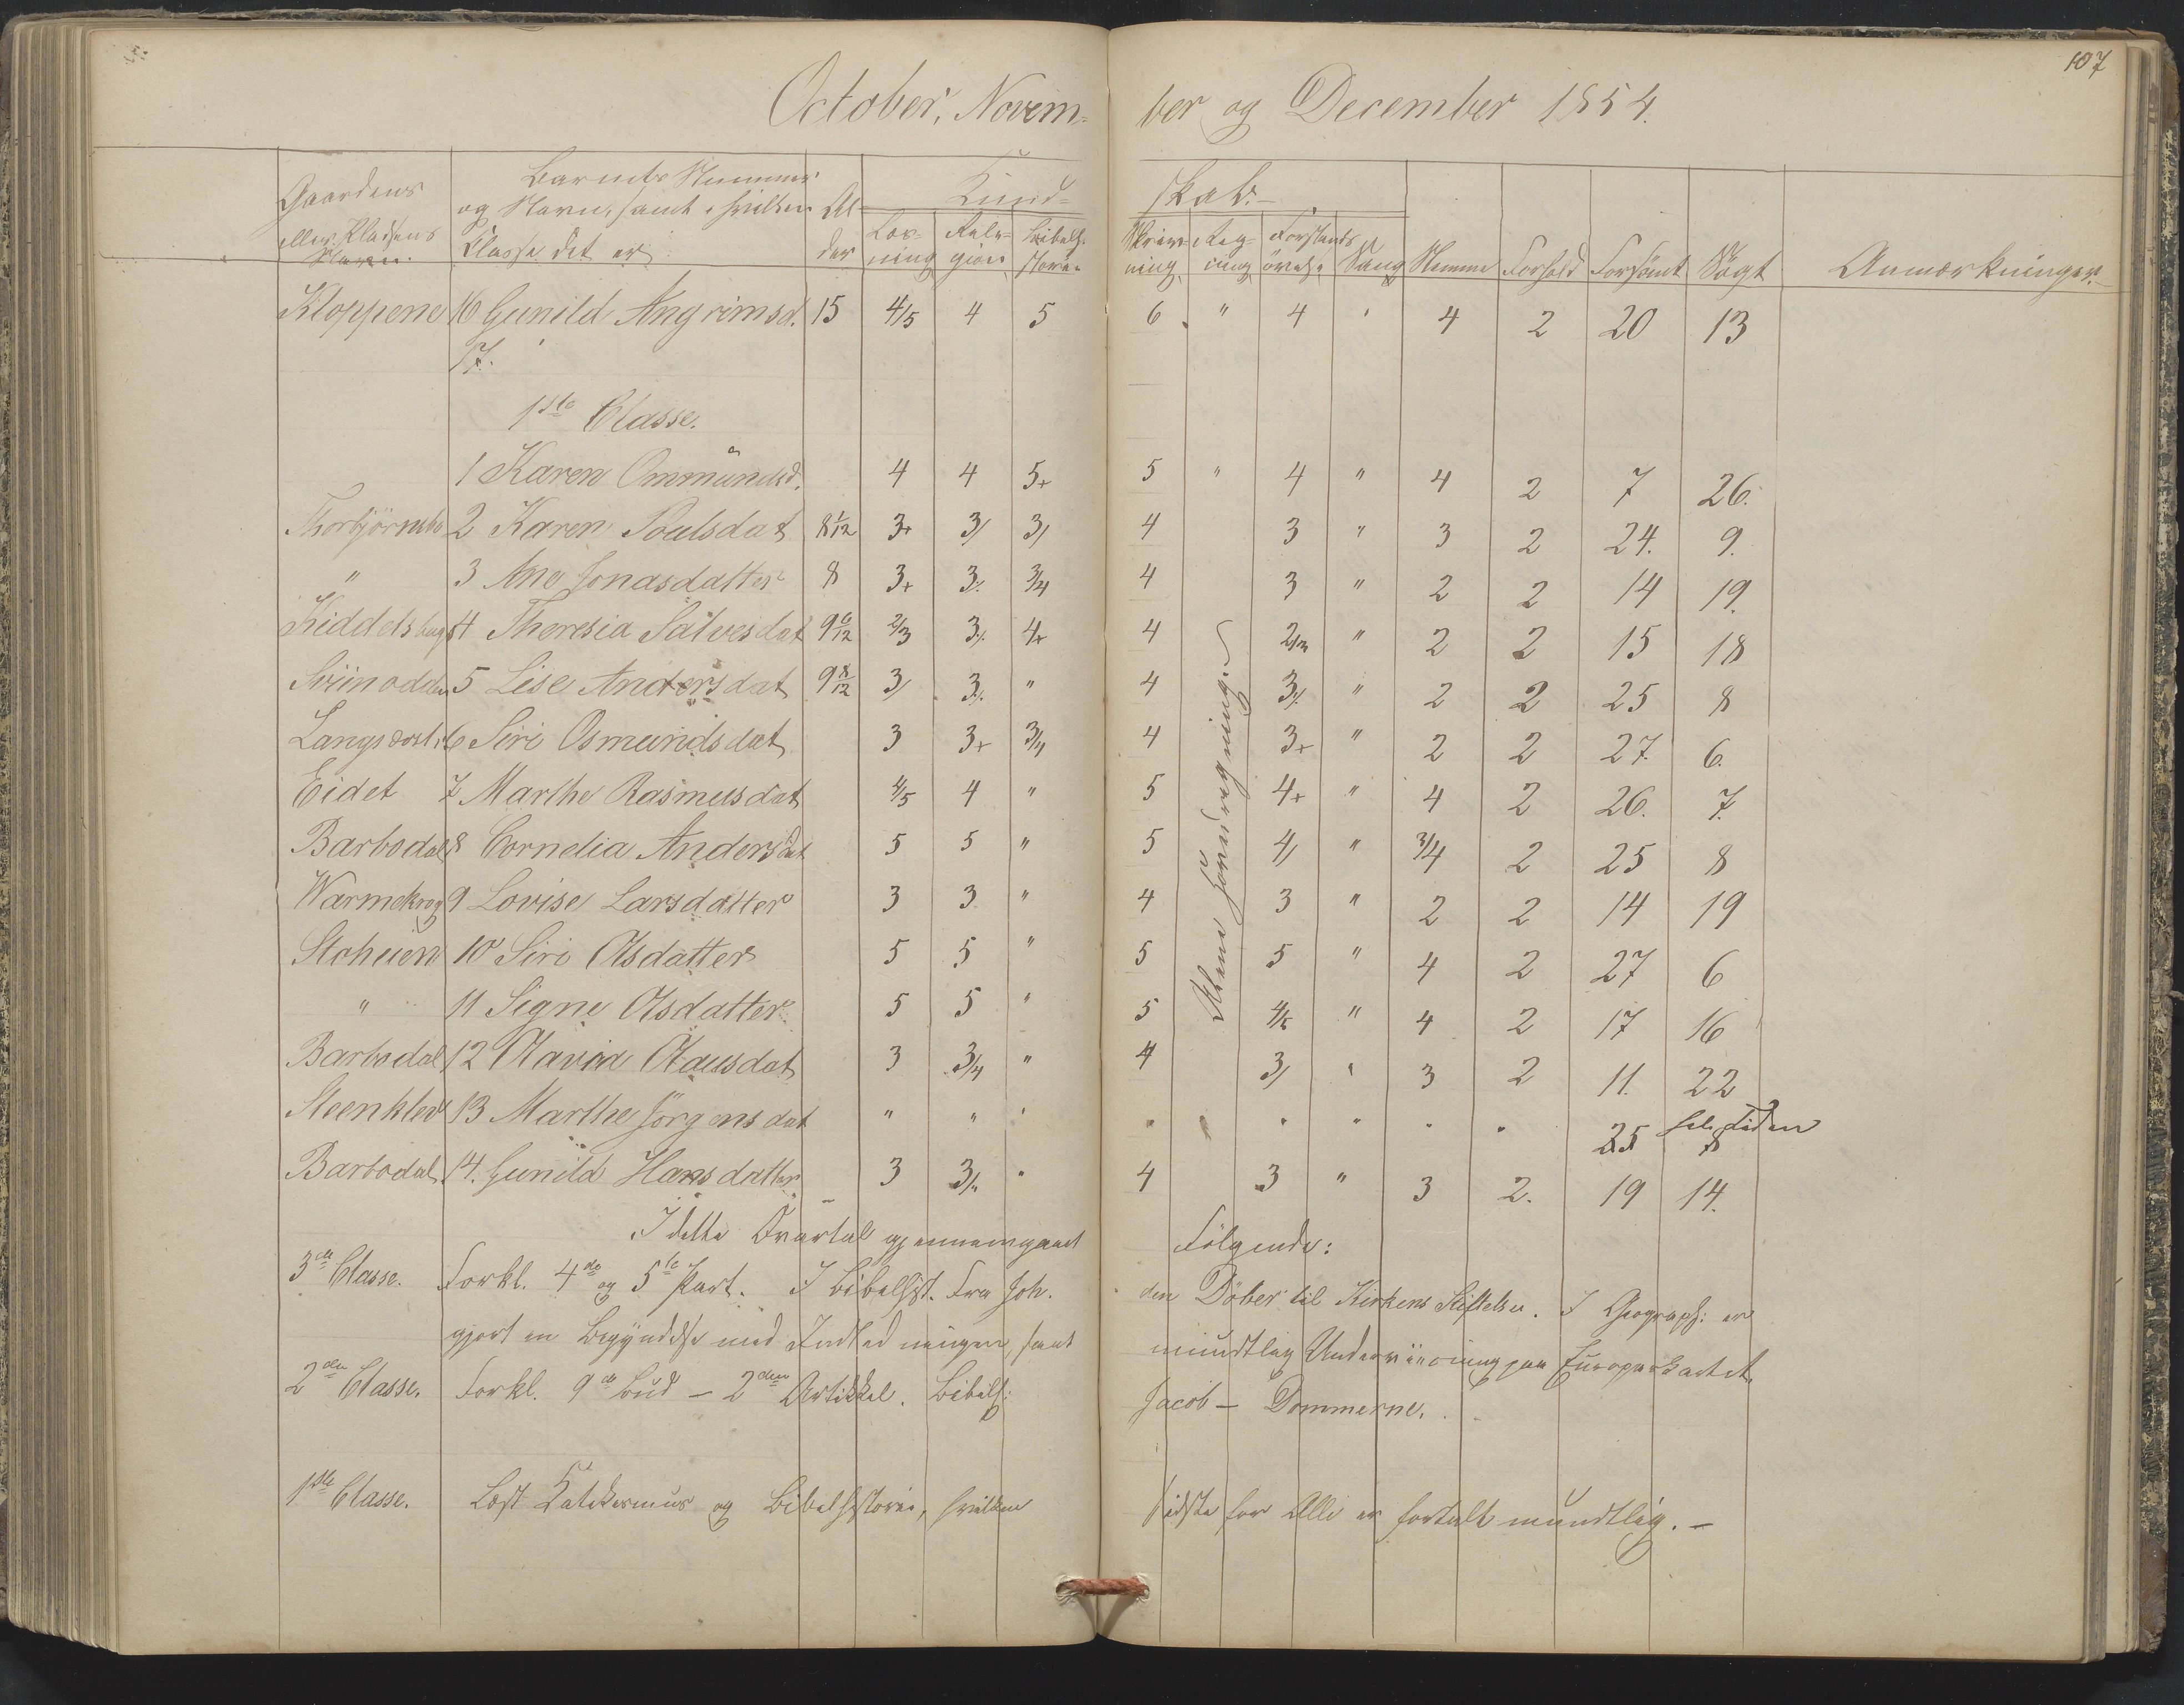 107
October, Novem- ber og December 1854.
Gaardens eller Pladsens Navn. Barnets Nummer og Navn, samt i hvilken Classe det er Al- der Kund- skab.- Anmærkninger.
Læs- ning Reli- gion Bibelh- storie Skriv- ning Reg- ning Forstands øvelse Sang Nemme Forhold Forsömt Sögt
Kloppene 16 Gunild Angrimsd. 15 4/5 4 5 6 " 4 " 4 2 20 13
17.
1ste Classe.
1 Karen Ommundsd. 4 4 5+ 5 " 4 " 4 2 7 26.
2 Karen Poulsdat 8 1/12 3+ 3/ 3/ 4 3 " 3 2 24. 9.
" 3 Ane Jonasdatter 8 3+ 3/. 3/4 4 3 " 2 2 14 19.
4 Theresia Salvesdat 9 6/12 2/3 3/. 4+ 4 2/3 " 2 2 15 18
Sviinodden 5 Lise Andersdat 9 8/12 3/ 3/. " 4 3/. " 2 2 25 8
6 Siri Osmundsdat 3 3+ 3/4 4 3+ " 2 2 27. 6.
Eidet 7 Marthe Rasmusdat 4/5 4 " 5 4+ " 4 2 26. 7.
Barbodal 8 Cornelia Andersdat 5 5 " 5 4/ " 3/4 2 25 8
Warmekrog 9 Lovise Larsdatter 3 3 " 4 3 " 2 2 14 19
Stoheien 10 Siri Olsdatter 5 5 " 5 5 " 4 2 27 6
" 11 Signe Olsdatter 5 5 " 5 4/5 " 4 2 17 16
Barbodal 12 Olavia Olausdat 3 3/4 " 4 3/ " 3 2 11. 22
Steenklev 13 Marthe Jörgensdat " " " " " " " " 25 8 tiden
Barbodal 14. Gunild Hansdatter 3 3/4 " 4 3 " 3 2. 19 14.
Alene hovedregning.
I dette Qvartal gjennemgaaet Følgende:
3die Classe. Forkl. 4de og 5te Part. I Bibelhist. fra Joh. den Döber til Kirkens Stiftelse. I Geograph: er
gjort en Begyndelse med Indledningen, samt mundtlig Underviisning paa Europakartet.
2den Classe. Forkl. 9de Bud - 2den Artikkel. Bibelh: Jacob - Dommerne.
1ste Classe. Læst Katekismus og Bibelhistorie, hvilken sidste for Alle er fortalt mundtlig. -